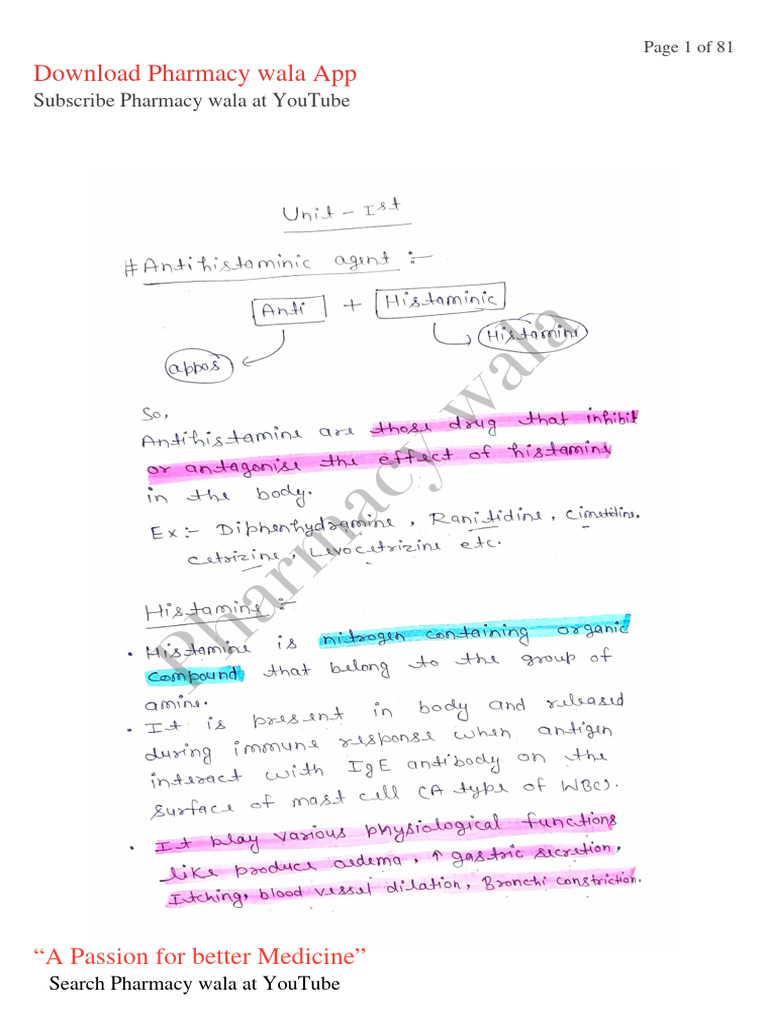 Page 1 of 81
Download Pharmacy wala App
Subscribe Pharmacy wala at YouTube
Unit - Ist
#Antihistaminic agent :-
Anti + Histaminic
appos Histamine
So,
Antihistamine are those drug that inhibit
or antagonise the effect of histamine
in the body.
Ex:- Diphenhydramine, Ranitidine, Cimetidine,
Cetrizine, Levocetrizine etc.
Histamine :-
• Histamine is nitrogen containing organic
compound that belong to the group of
amine.
• It is present in body and released
during immune response when antigen
interact with IgE antibody on the
surface of mast cell (A type of WBC).
• It play various physiological functions
like produce oedema, ↑ gastric secretion,
Itching, blood vessel dilation, Bronchi constriction.
Pharmacy wala
“A Passion for better Medicine”
Search Pharmacy wala at YouTube